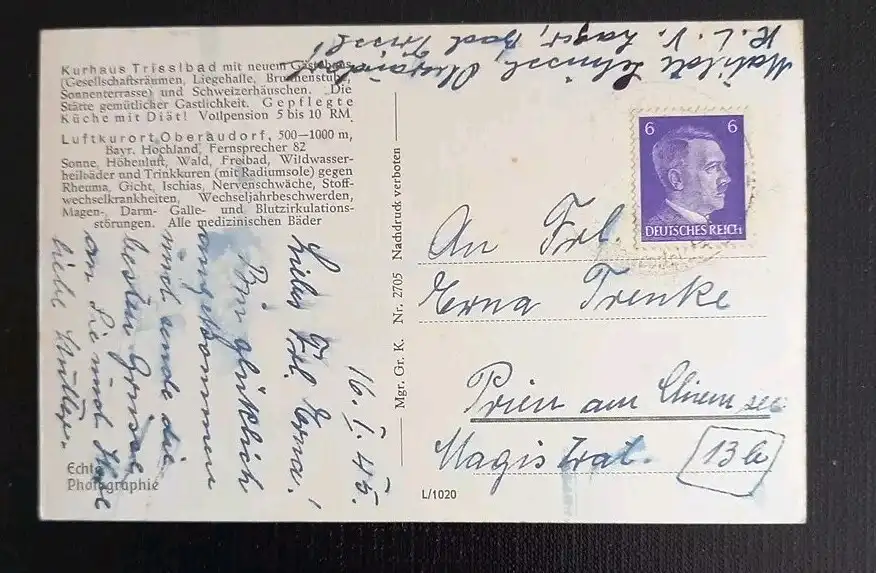 Kurhaus Trisslbad mit neuem Gästehaus
(Gesellschaftsräumen, Liegehalle, Brunnenstube,
Sonnenterrasse) und Schweizerhäuschen. Die
Stätte gemütlicher Gastlichkeit. Gepflegte
Küche mit Diät! Vollpension 5 bis 10 RM.
Luftkurort Oberaudorf, 500—1000 m,
Bayr. Hochland, Fernsprecher 82
Sonne, Höhenluft, Wald, Freibad, Wildwasser-
heilbäder und Trinkkuren (mit Radiumsole) gegen
Rheuma, Gicht, Ischias, Nervenschwäche, Stoff-
wechselkrankheiten, Wechseljahrbeschwerden,
Magen-, Darm- Galle- und Blutzirkulations-
störungen. Alle medizinischen Bäder
16. I. 45.
Liebes Frl. Erna!
Bin glücklich
angekommen
und sende die
besten Grüsse
an Sie und Ihre
liebe Mutter.
Echte
Photographie
Mgr. Gr. K. Nr. 2705 Nachdruck verboten
L/1020
K. L. V. Lager, Bad Trissl
Mathilde
6 6
DEUTSCHES REICH
An Frl.
Erna Trenke
Prien am Chiemsee
Magistrat. 13b